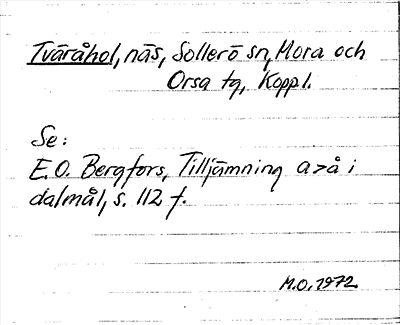 Tväråhol, näs, Sollerö sn, Mora och
Orsa tg, Koppl.
Se:
E.O. Bergfors, Tilljämning a>å i
dalmål, s. 112 f.
M.O. 1972